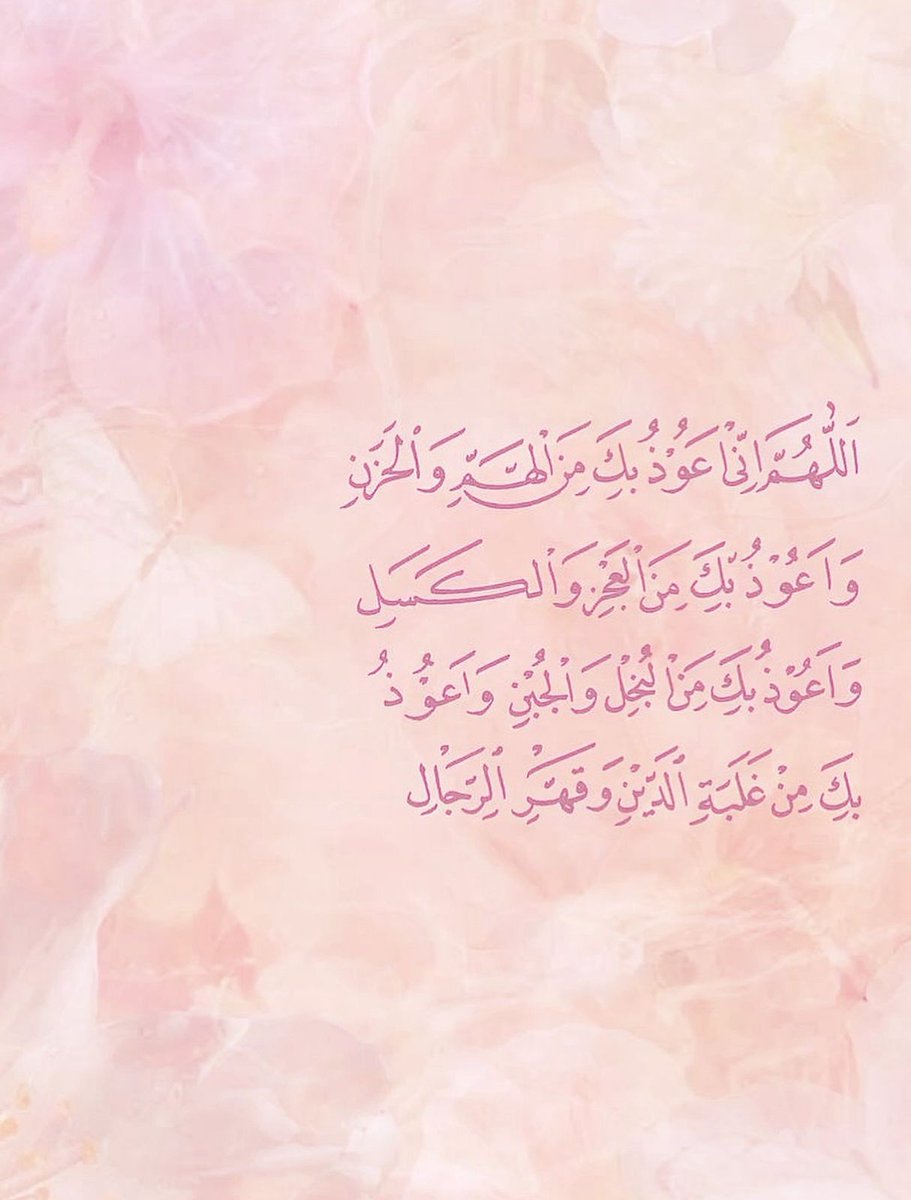 اَللّٰهُمَّ اِنِّىْ اَعُوْذُ بِكَ مِنَ الْهَمِّ وَالْحَزَنِ
وَاَعُوْذُ بِكَ مِنَ الْعَجْزِ وَالْكَسَلِ
وَاَعُوْذُ بِكَ مِنَ الْبُخْلِ وَالْجُبْنِ وَاَعُوْذُ
بِكَ مِنْ غَلَبَةِ الدَّيْنِ وَقَهْرِ الرِّجَالِ